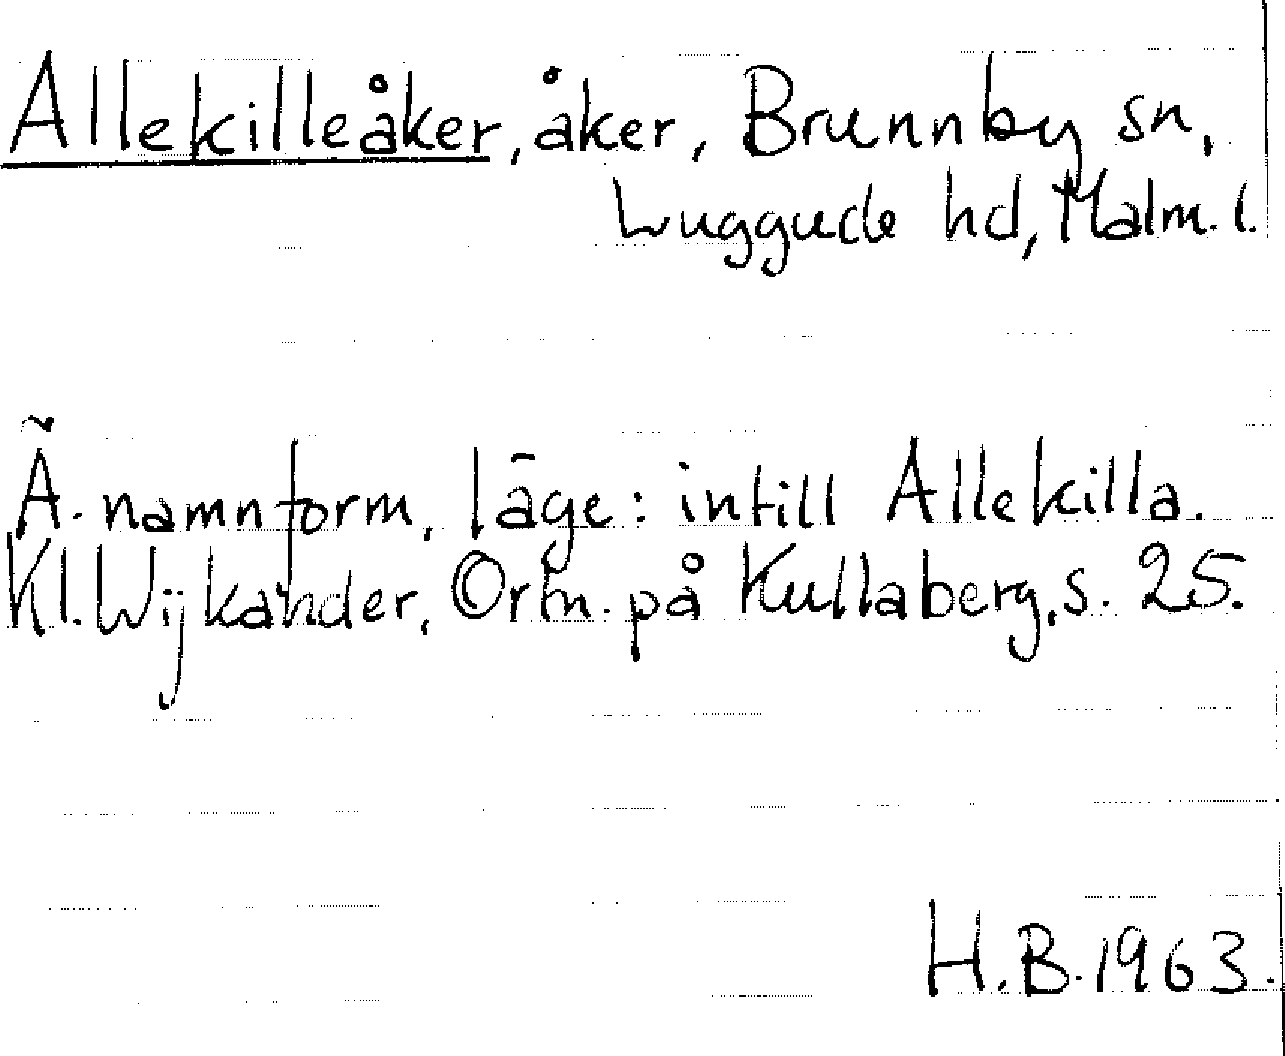 Allekilleåker, åker, Brunnby sn,
Luggude hd, Malm. l.
Ä. namnform, läge: intill Allekilla.
Kl. Wijkander, Ortn. på Kullaberg, s. 25.
H.B. 1963.